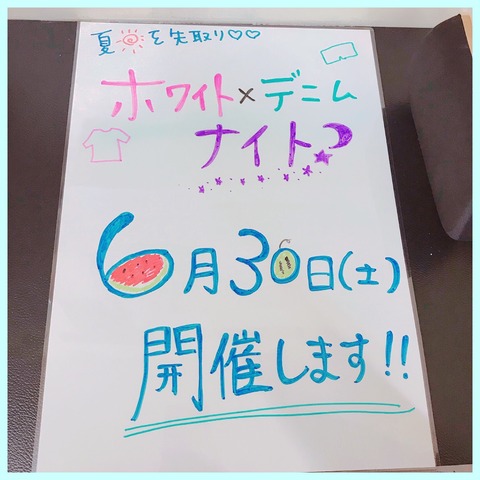 夏を先取り♡♡
ホワイト×デニム
ナイト
6月30日(土)
開催します!!